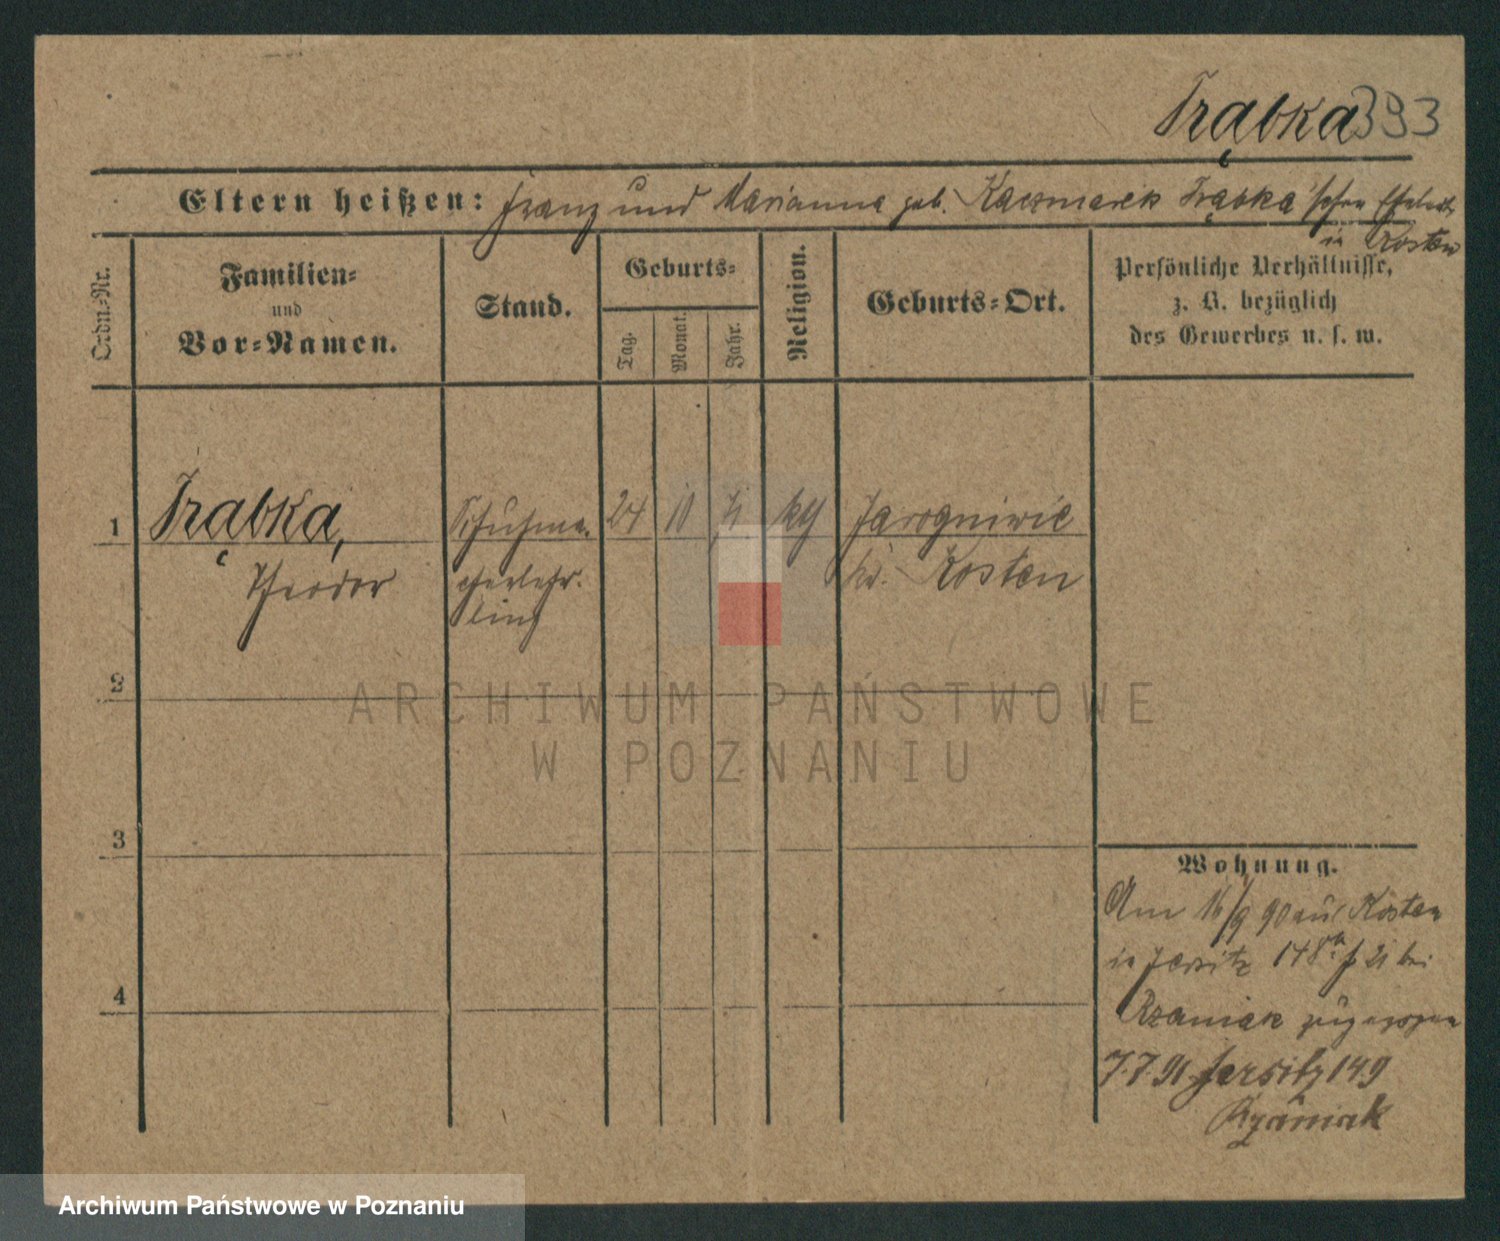 Trąbka 393
Eltern heißen: Franz und Marianna geb. Kaczmarek Trąbka'schen Eheleute
in Kosten
Ordn.-Nr.
Familien-
und
Vor-Namen.
Stand.
Geburts-
Tag.
Monat.
Jahr.
Religion.
Geburts-Ort.
Persönliche Verhältnisse,
z. B. bezüglich
des Gewerbes u. s. w.
1 Trąbka, Schuhma- 24 10 kth Jarogniwic
Theodor cherlehr- Kr. Kosten
ling
2
3
4
Wohnung.
Am 16/9 90 aus Kosten
in Jersitz 148a bei
Rzaniak zugezogen
7.7.91 Jersitz 149
Rzaniak
ARCHIWUM PAŃSTWOWE
W POZNANIU
Archiwum Państwowe w Poznaniu